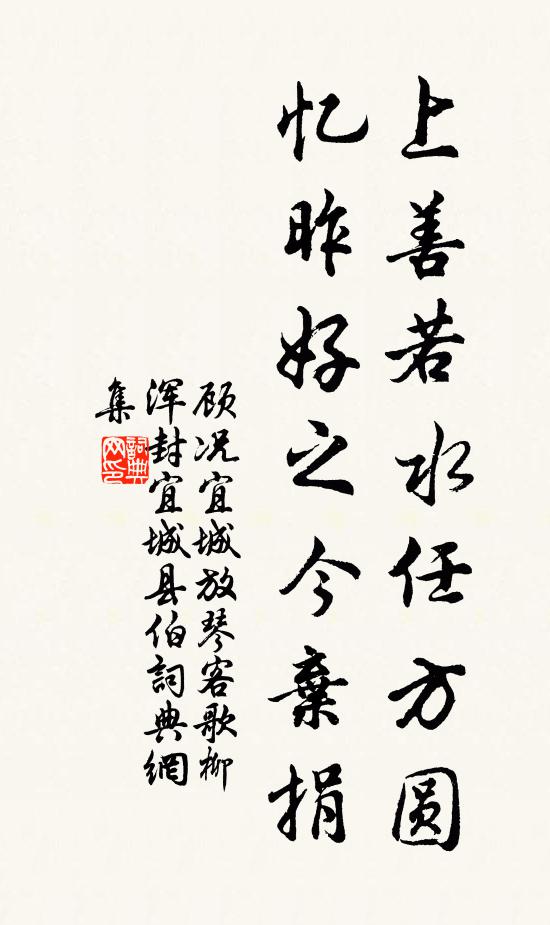 上善若水任方圆
忆昨好之今弃捐
顾况宜城放琴客歌柳
浑封宜城县伯詞典網
集
詞典
网印